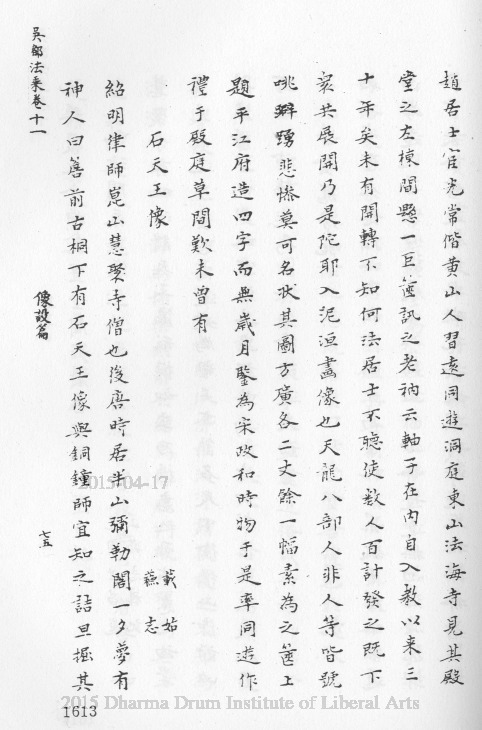 趙居士宦光常偕黃山人習遠同遊洞庭東山法海寺見其殿
堂之左棟間懸一巨篋訊之老衲云軸子在內自入教以來三
十年矣未有開轉不知何法居士不聽使數人百計發之既下
衆共展開乃是陀耶入泥洹畫像也天龍八部人非人等皆號
咷擗踴悲慘莫可名狀其圖方廣各二丈餘一幅素為之篋上
題平江府造四字而無歲月鑒為宋政和時物于是率同遊作
禮于殿庭草間歎未曾有
石天王像
紹明律師崑山慧聚寺僧也後唐時居半山彌勒閣一夕夢有
載姑
蘇志
神人曰善前古桐下有石天王像與銅鐘師宜知之詰旦掘其
吳都法乘卷十一
像設篇
七五
1613
2015-04-17
2015 Dharma Drum Institute of Liberal Arts